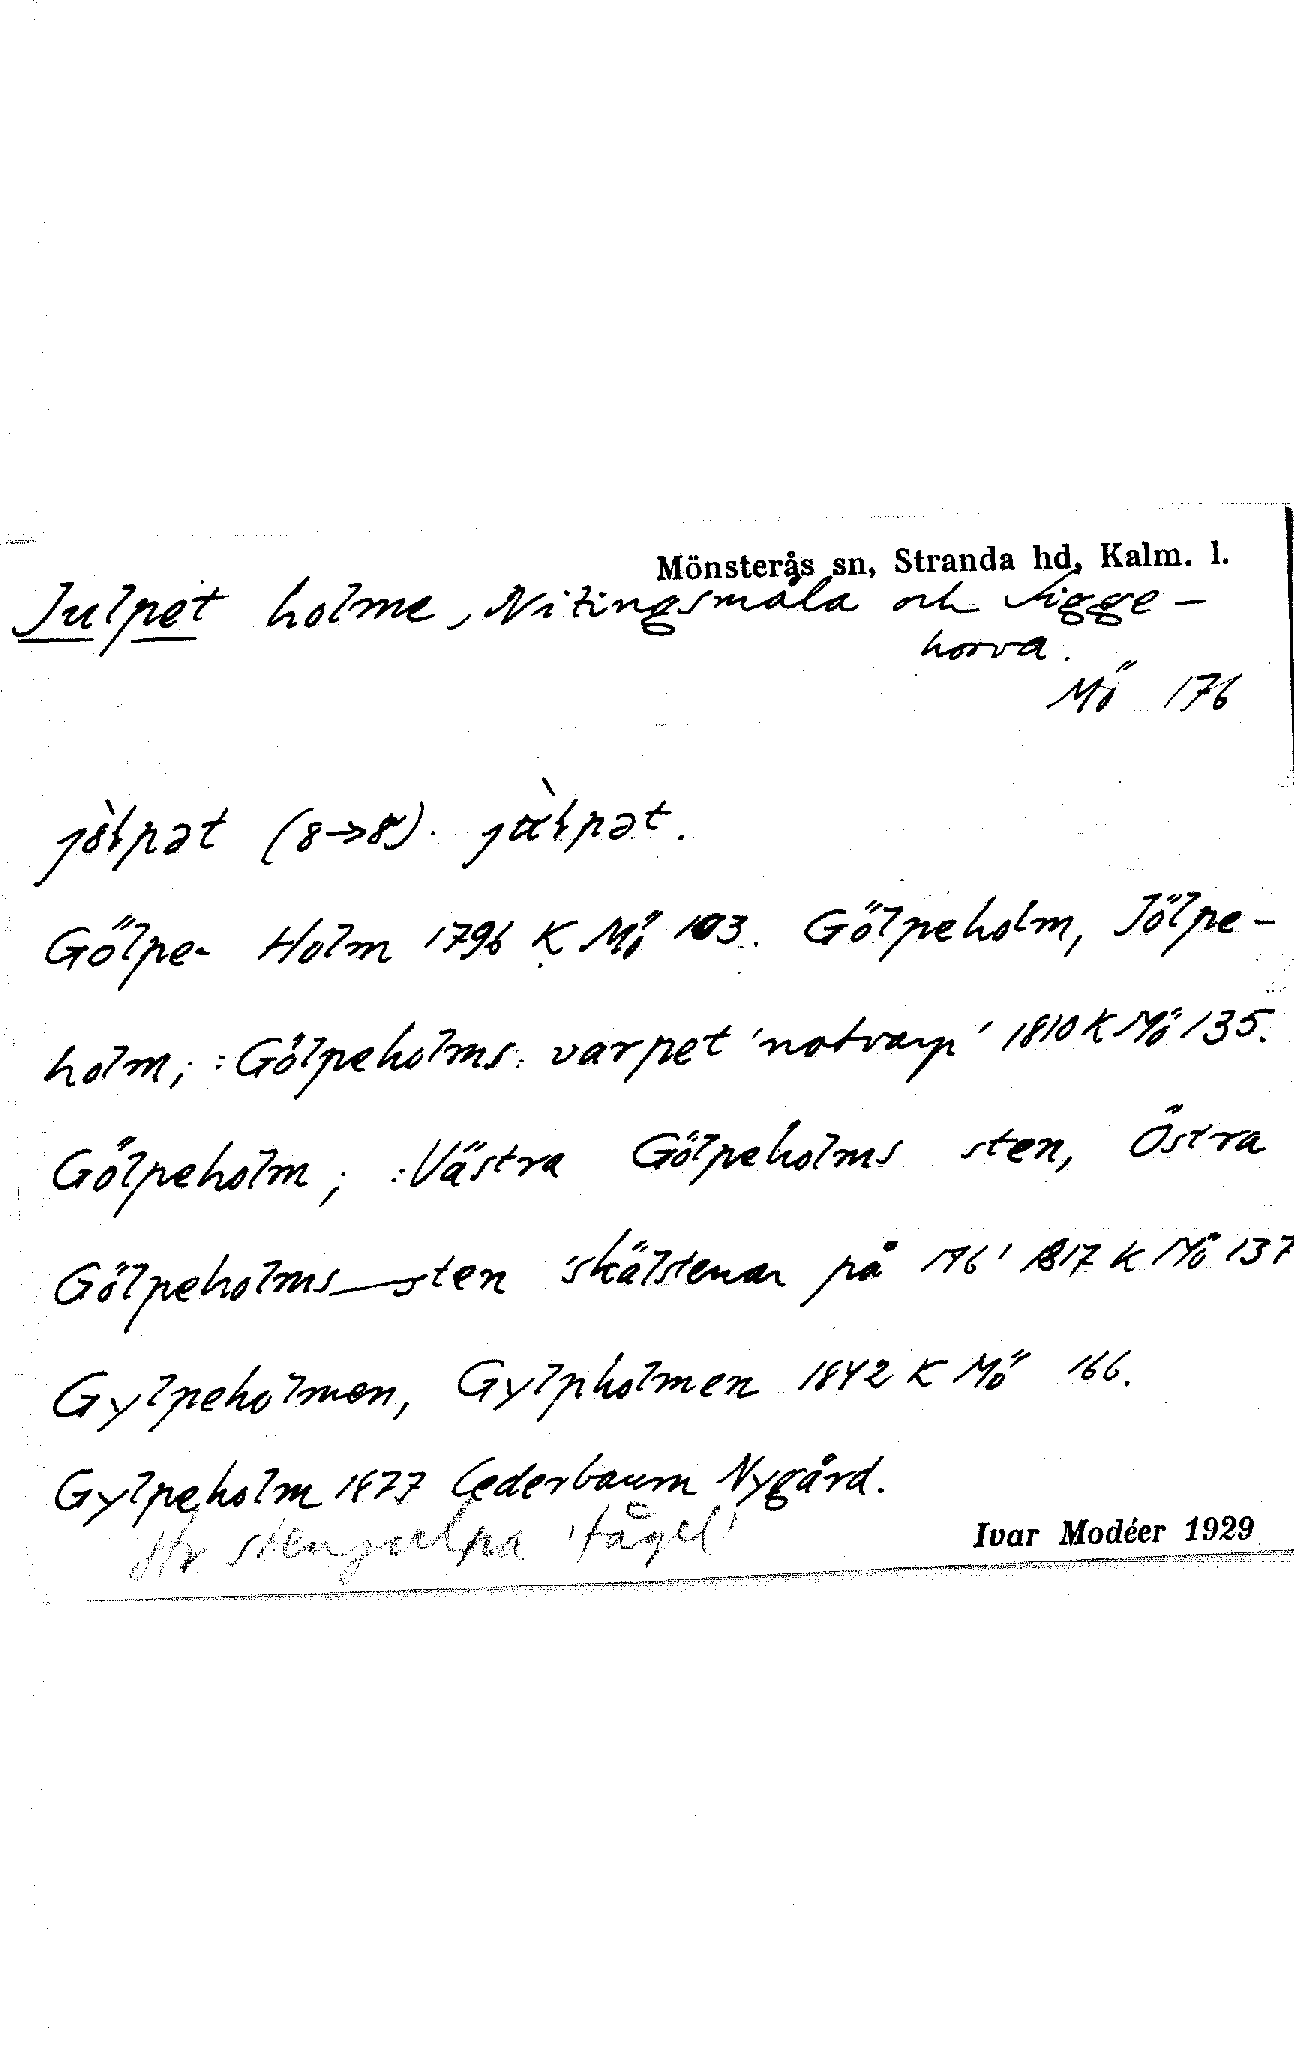 Mönsterås sn, Stranda hd, Kalm. l.
Julpet holme, Nitingsmåla och Sigge-
horva.
Mö 176
(8→8).
Gölpe- Holm 1796 K Mö 103. Gölpeholm, Jölpe-
holm; :Gölpeholms: varpet 'notvarp' 1810 K Mö 135.
Gölpeholm; :Västra Gölpeholms sten, Östra
Gölpeholms sten 'skälstenar på 176' 1817 K Mö 137
Gylpeholmen, Gylpholmen 1842 K Mö 166.
Gylpeholm 1877 Cederbaum Nygård.
stenjulpa 'fågel'
Ivar Modéer 1929